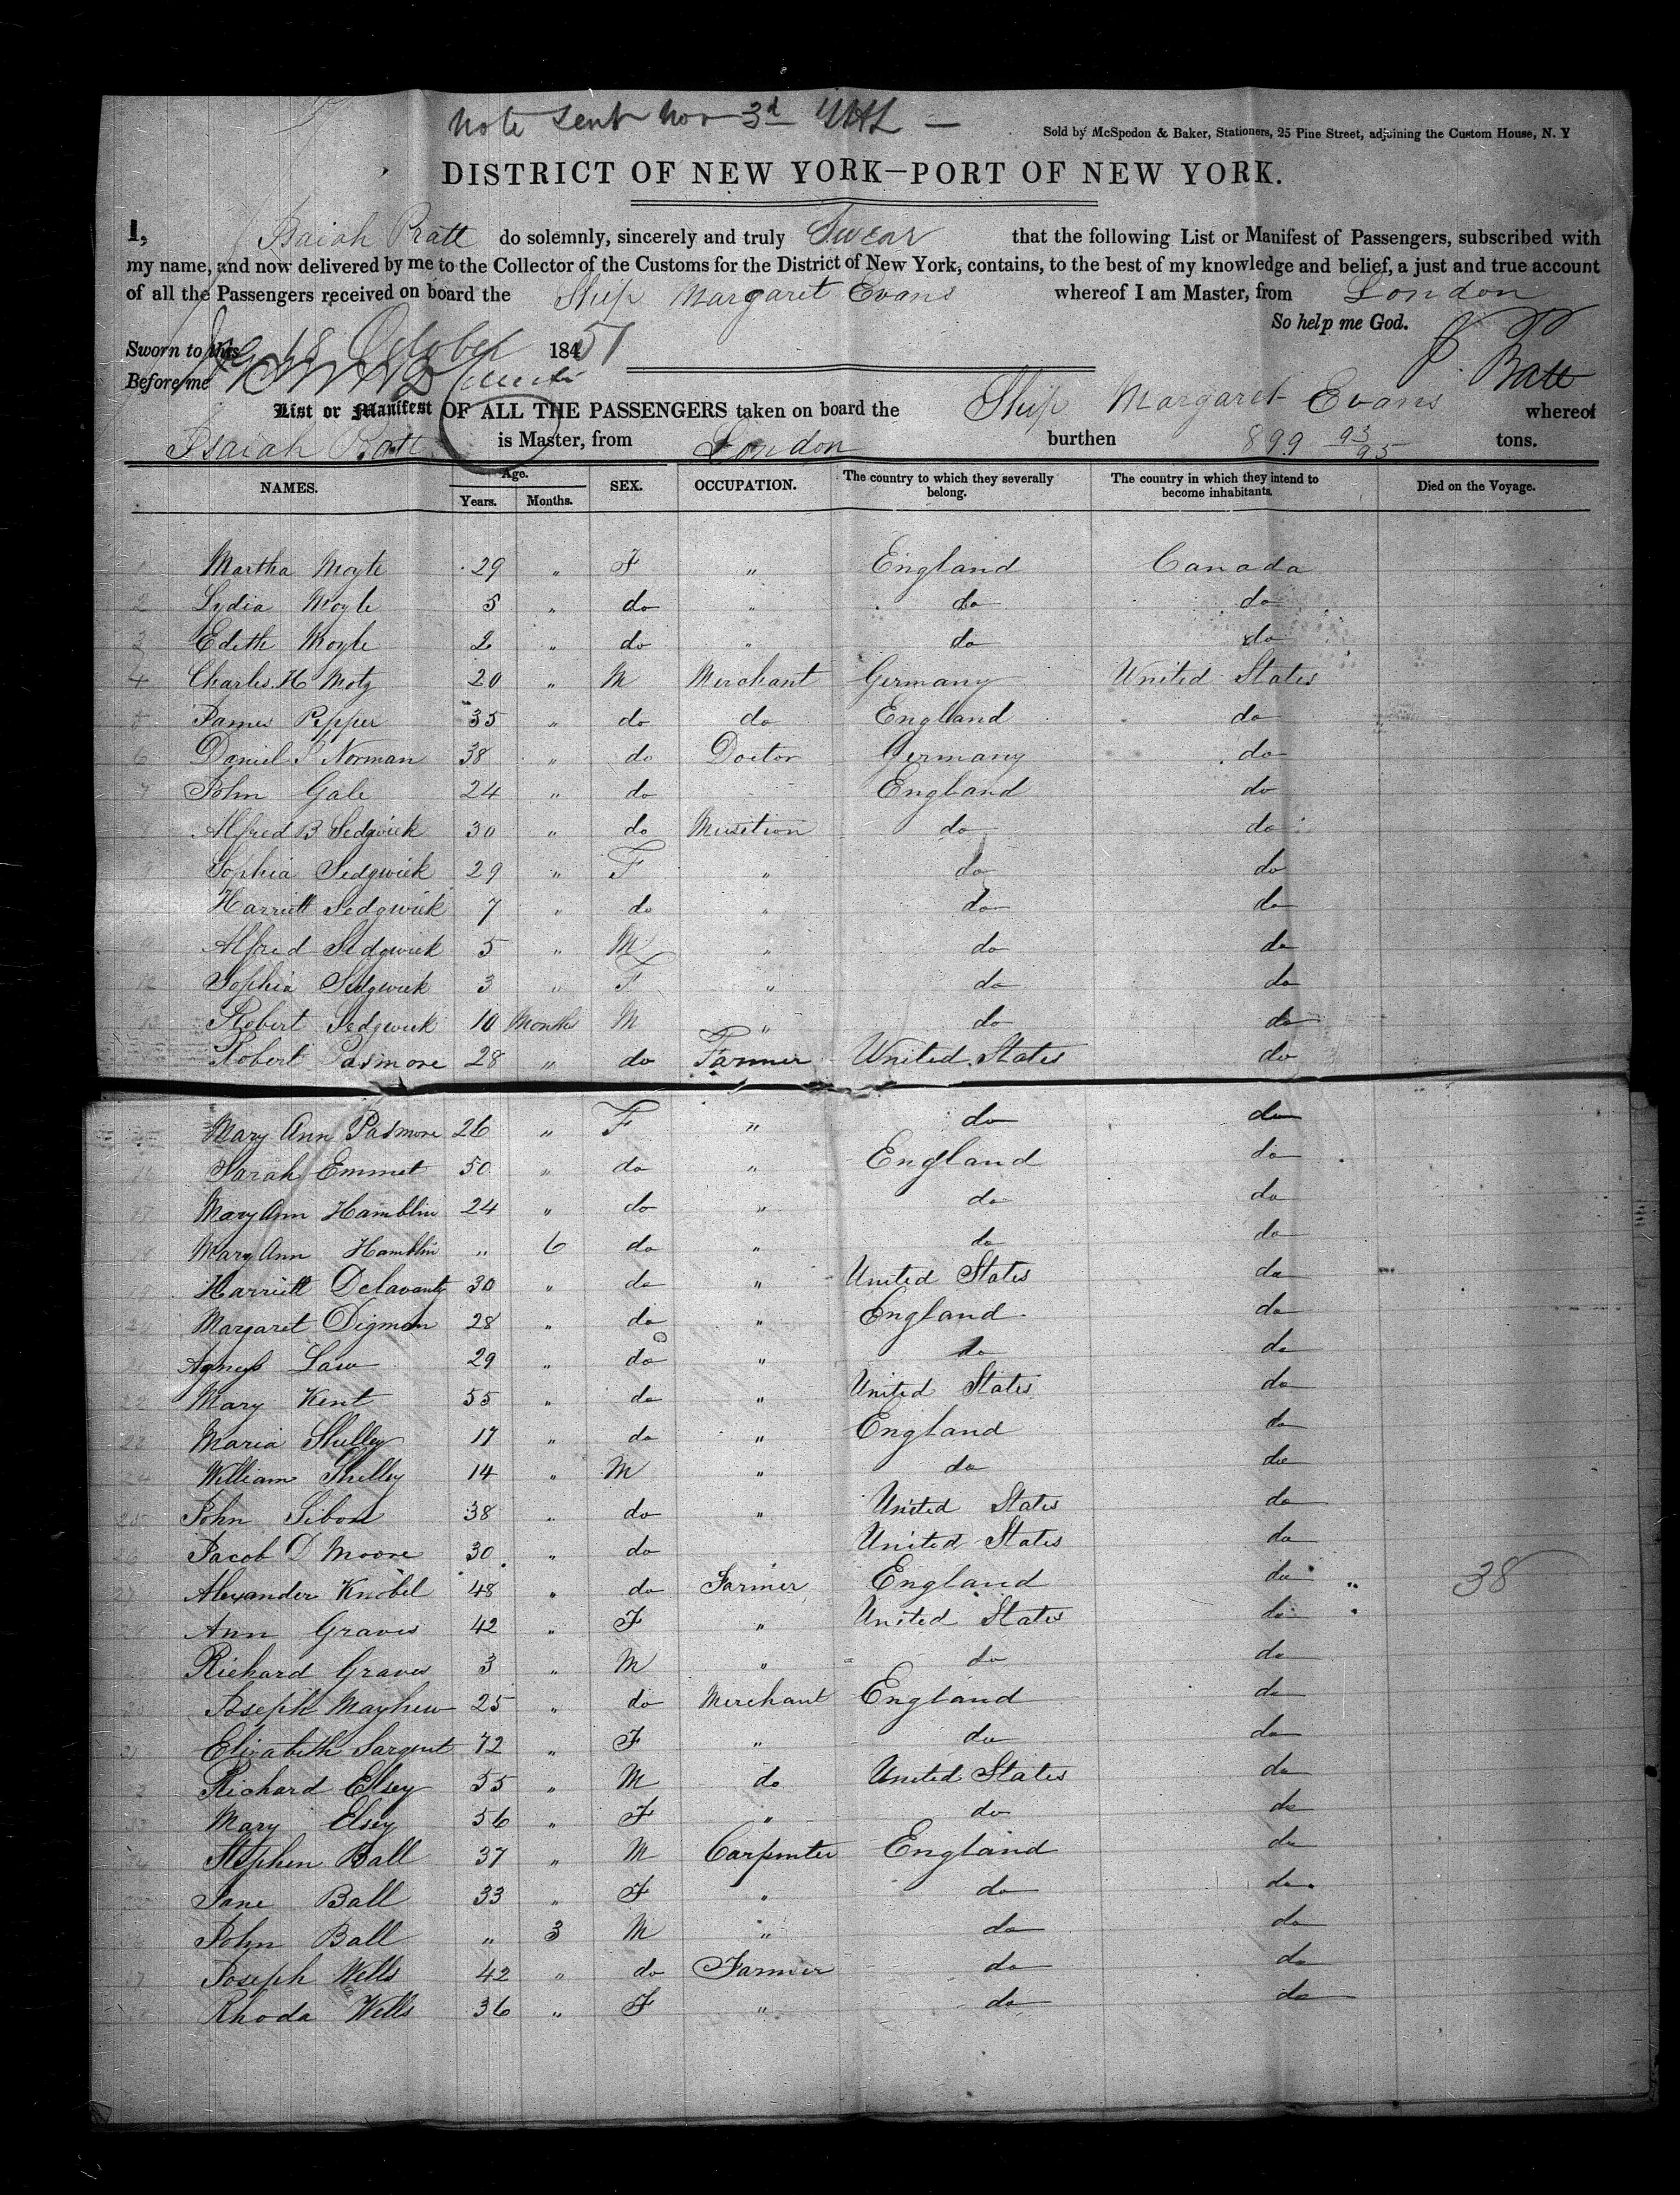 Note sent Nov 3d
Sold by McSpedon & Baker, Stationers, 25 Pine Street, adjoining the Custom House, N. Y
DISTRICT OF NEW YORK—PORT OF NEW YORK.
I, Isaiah Pratt do solemnly, sincerely and truly Swear that the following List or Manifest of Passengers, subscribed with
my name, and now delivered by me to the Collector of the Customs for the District of New York, contains, to the best of my knowledge and belief, a just and true account
of all the Passengers received on board the Ship Margaret Evans whereof I am Master, from London
So help me God.
Sworn to this 18 October 1851
I Pratt
Before me
List or Manifest OF ALL THE PASSENGERS taken on board the Ship Margaret Evans whereof
Isaiah Pratt is Master, from London burthen 899 93/95 tons.
NAMES. Age. Years. Months. SEX. OCCUPATION. The country to which they severally belong. The country in which they intend to become inhabitants. Died on the Voyage.
1 Martha Moyle 29 " F " England Canada
2 Lydia Moyle 5 " do " do do
3 Edith Moyle 2 " do " do do
4 Charles H Motz 20 " M Merchant Germany United States
5 James Pepper 35 " do do England do
6 Daniel S Norman 38 " do Doctor Germany do
7 John Gale 24 " do England do
8 Alfred B Sedgwick 30 " do Musition do do
9 Sophia Sedgwick 29 " F " do do
Harriett Sedgwick 7 " do " do do
11 Alfred Sedgwick 5 " M " do do
12 Sophia Sedgwick 3 " F " do do
13 Robert Sedgwick 10 Months M " do do
Robert Pasmore 28 " do Farmer United States do
Mary Ann Pasmore 26 " F " do do
16 Sarah Emmet 50 " do " England do
17 Mary Ann Hamblin 24 " do " do do
18 Mary Ann Hamblin " 6 do " do do
19 Harriett Delavanty 30 " do " United States do
20 Margaret Digman 28 " do " England do
21 Agness Law 29 " do " do do
22 Mary Kent 55 " do " United States do
23 Maria Shelley 17 " do " England do
24 William Shelley 14 " M " do do
25 John Sibon 38 " do " United States do
26 Jacob D Moore 30 " do United States do
27 Alexander Knobel 48 " do Farmer England do 38
28 Ann Graves 42 " F " United States do
Richard Graves 3 " M " do do
30 Joseph Mayhew 25 " do Merchant England do
31 Elizabeth Sargent 72 " F " do do
Richard Elsey 55 " M do United States do
33 Mary Elsey 56 " F " do do
34 Stephen Ball 37 " M Carpenter England do
35 Jane Ball 33 " F " do do
John Ball " 3 M " do do
37 Joseph Wells 42 " do Farmer do do
Rhoda Wells 36 " F " do do